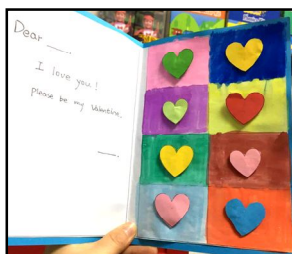 Dear ___.
I love you!
Please be my Valentine.
___.